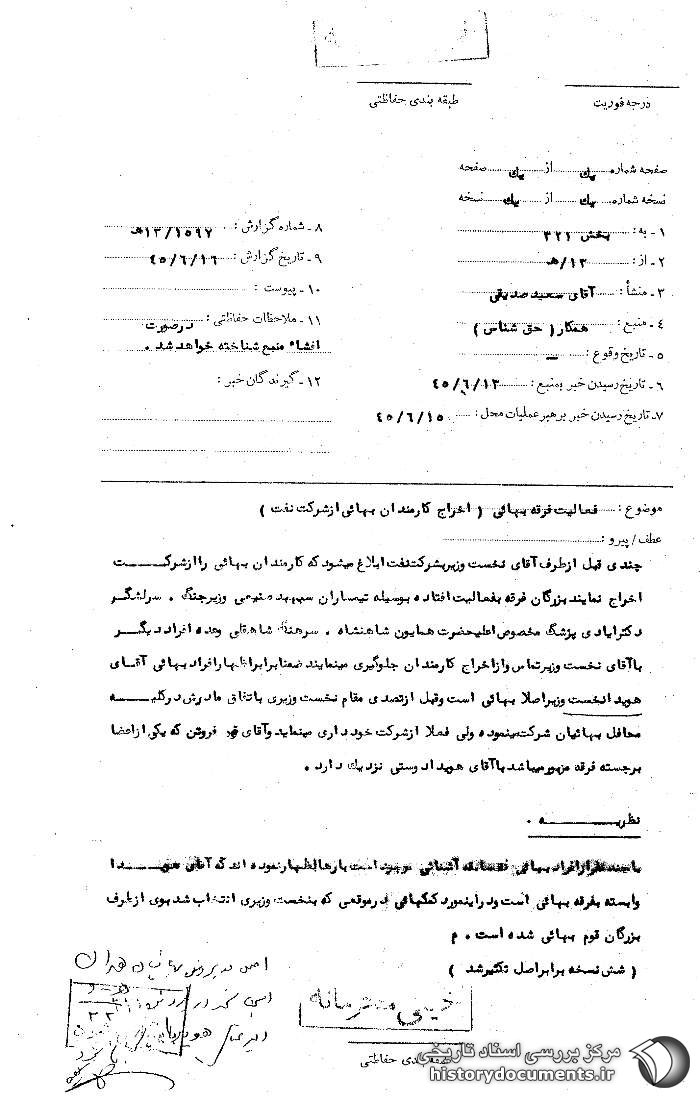 درجه فوریت
طبقه بندی حفاظتی
صفحه شماره یک از یک صفحه
نسخه شماره یک از یک نسخه
۱ - به : بخش ۳۲۱
۲ - از : ۱۳/هـ
۳ - منشأ : آقای سعید صدیقی
۴ - منبع : همکار ( حق شناس )
۵ - تاریخ وقوع : ــ
۶ - تاریخ رسیدن خبر بمنبع : ۴۵/۶/۱۳
۷ - تاریخ رسیدن خبر برهبر عملیات محل : ۴۵/۶/۱۵
۸ - شماره گزارش : ۱۳/۱۵۹۷هـ
۹ - تاریخ گزارش : ۴۵/۶/۱۶
۱۰ - پیوست :
۱۱ - ملاحظات حفاظتی : درصورت
افشاء منبع شناخته خواهد شد .
۱۲ - گیرندگان خبر :
موضوع : فعالیت فرقه بهائی ( اخراج کارمندان بهائی از شرکت نفت )
عطف / پیرو :
چندی قبل از طرف آقای نخست وزیر بشرکت نفت ابلاغ میشود که کارمندان بهائی را از شرکت
اخراج نمایند بزرگان فرقه بفعالیت افتاده بوسیله تیمساران سپهبد صنیعی وزیر جنگ . سرلشگر
دکتر ایادی پزشگ مخصوص اعلیحضرت همایون شاهنشاه . سرهنگ شاهقلی وعده افراد دیگر
با آقای نخست وزیر تماس و از اخراج کارمندان جلوگیری مینمایند ضمنا برابر اظهار افراد بهائی آقای
هویدا نخست وزیر اصلا بهائی است وقبل از تصدی مقام نخست وزیری باتفاق مادرش در کلیه
محافل بهائیان شرکت مینموده ولی فعلا از شرکت خودداری مینماید و آقای فروشن که یکی از اعضا
برجسته فرقه مزبور میباشد با آقای هویدا دوستی نزدیک دارد .
نظریه .
با چند نفر از افراد بهائی آشنائی موجود است بارها اظهار نموده اند که آقای هویدا
وابسته بفرقه بهائی است و در اینمورد کمکهائی در موقعی که بنخست وزیری انتخاب شد بوی از طرف
بزرگان قوم بهائی شده است . م
( شش نسخه برابر اصل تکثیر شد )
اصل در پرونده
خیلی محرمانه
طبقه بندی حفاظتی
مرکز بررسی اسناد تاریخی
historydocuments.ir